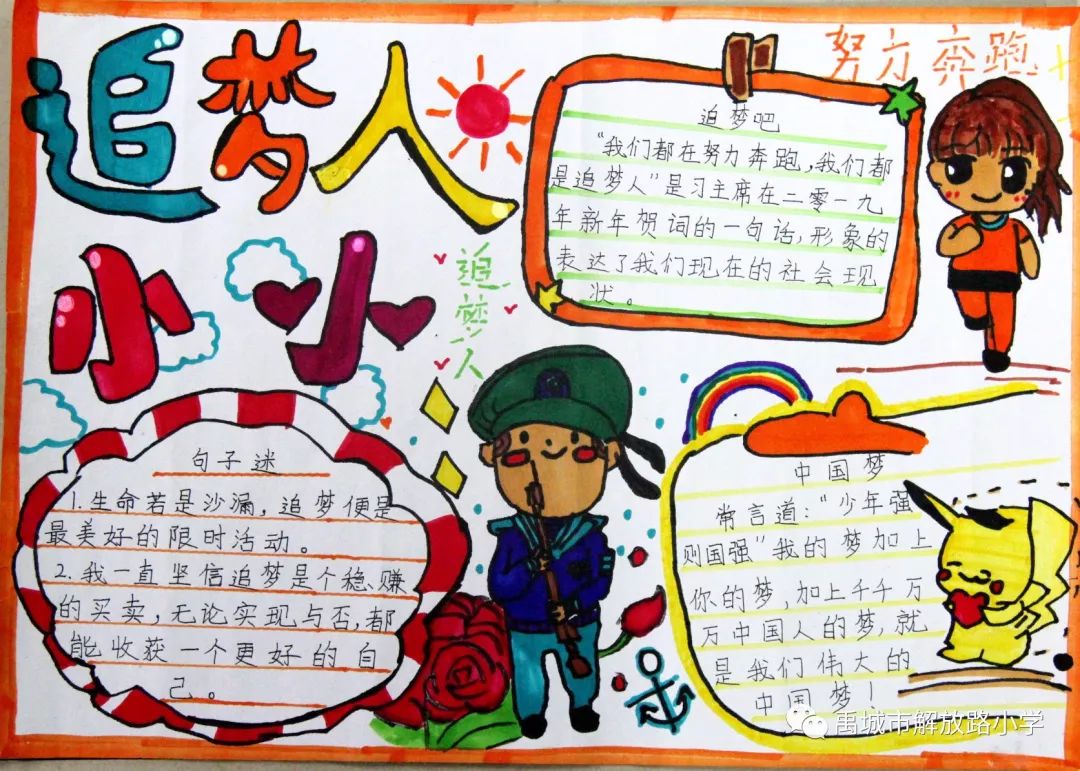 追梦人
小小
努力奔跑
追梦人
追梦吧
“我们都在努力奔跑,我们都
是追梦人”是习主席在二零一九
年新年贺词的一句话,形象的
表达了我们现在的社会现
状。
句子迷
1.生命若是沙漏,追梦便是
最美好的限时活动。
2.我一直坚信追梦是个稳赚
的买卖,无论实现与否,都
能收获一个更好的自
己。
中国梦
常言道:“少年强
则国强”我的梦加上
你的梦,加上千千万
万中国人的梦,就
是我们伟大的
中国梦!
禹城市解放路小学